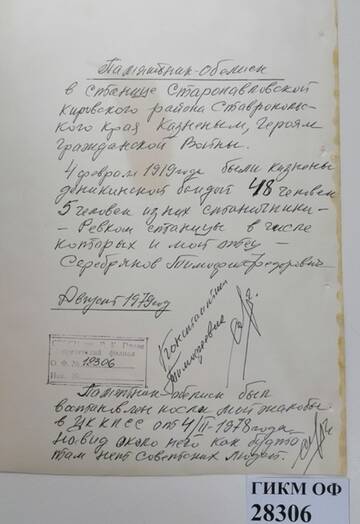 Памятник-обелиск
в станице Старопавловской
Кировского района Ставрополь-
ского края Казненым, героям
гражданской Войны.
4 февраля 1919 года были казнены
деникинской бандой 48 человек
5 человек из них станичники -
- Ревком станицы в числе
которых и мой отец -
Серебряков Тимофей Федорович
Август 1979 год
Константин
Тимофеевич
28306
Памятник-обелиск был
востановлен после моей жалобы
в ЦК КПСС от 4/II-1978 года
на вид около него как будто
там нет Советских людей.
ГИКМ ОФ
28306